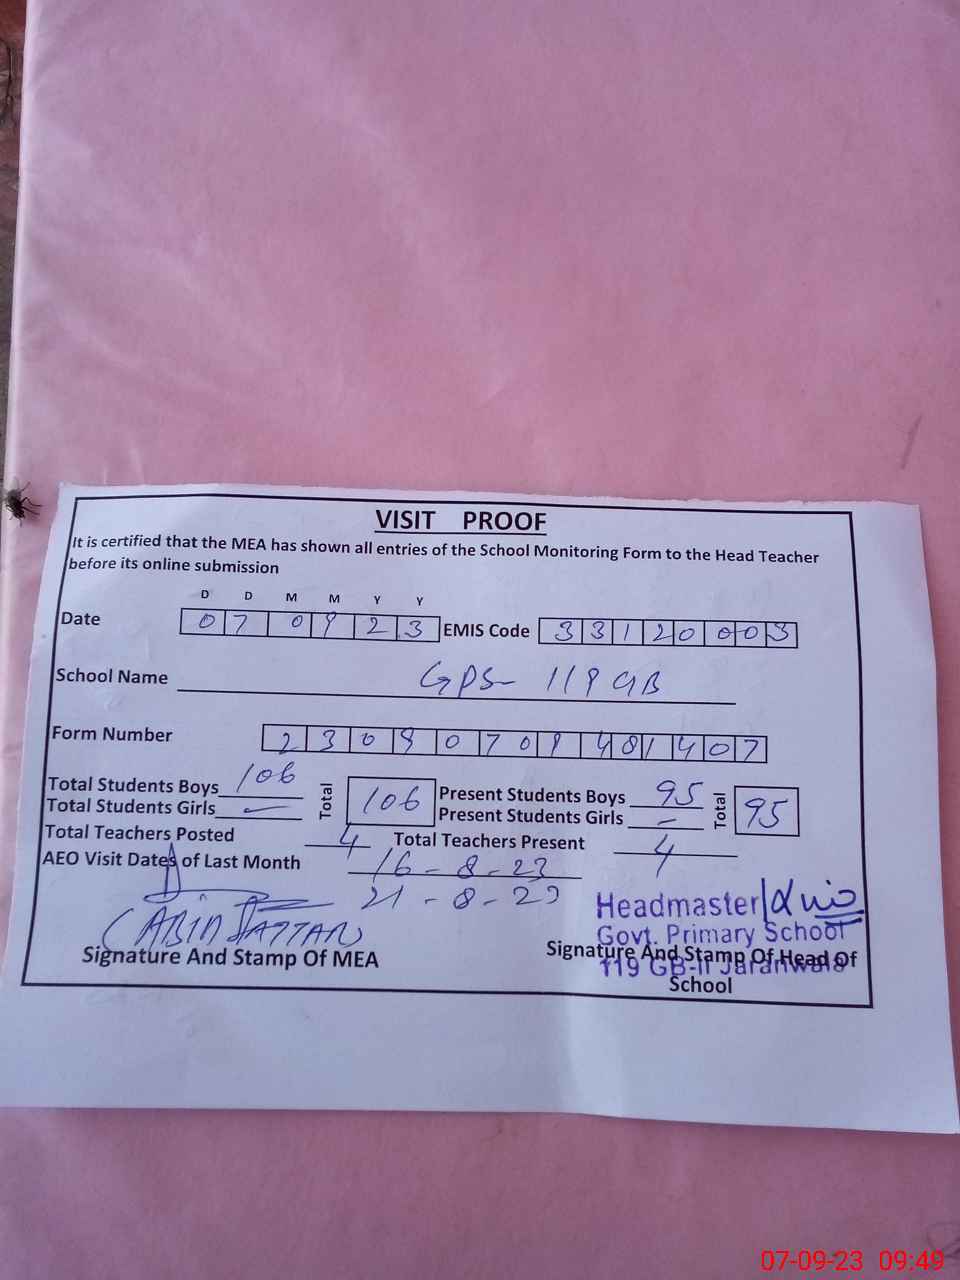 VISIT PROOF
It is certified that the MEA has shown all entries of the School Monitoring Form to the Head Teacher
before its online submission
D D M M Y Y
Date 0 7 0 9 2 3 EMIS Code 3 3 1 2 0 0 0 3
School Name GPS- 119 GB
Form Number 2 3 0 9 0 7 0 9 4 8 1 4 0 7
Total Students Boys 106 Total 106 Present Students Boys 95 Total 95
Total Students Girls — Present Students Girls –
Total Teachers Posted 4 Total Teachers Present 4
AEO Visit Dates of Last Month 16-8-23
21-8-23
Headmaster
Govt. Primary School
119 GB-II Jaranwala
Signature And Stamp Of MEA
Signature And Stamp Of Head Of
School
07-09-23 09:49